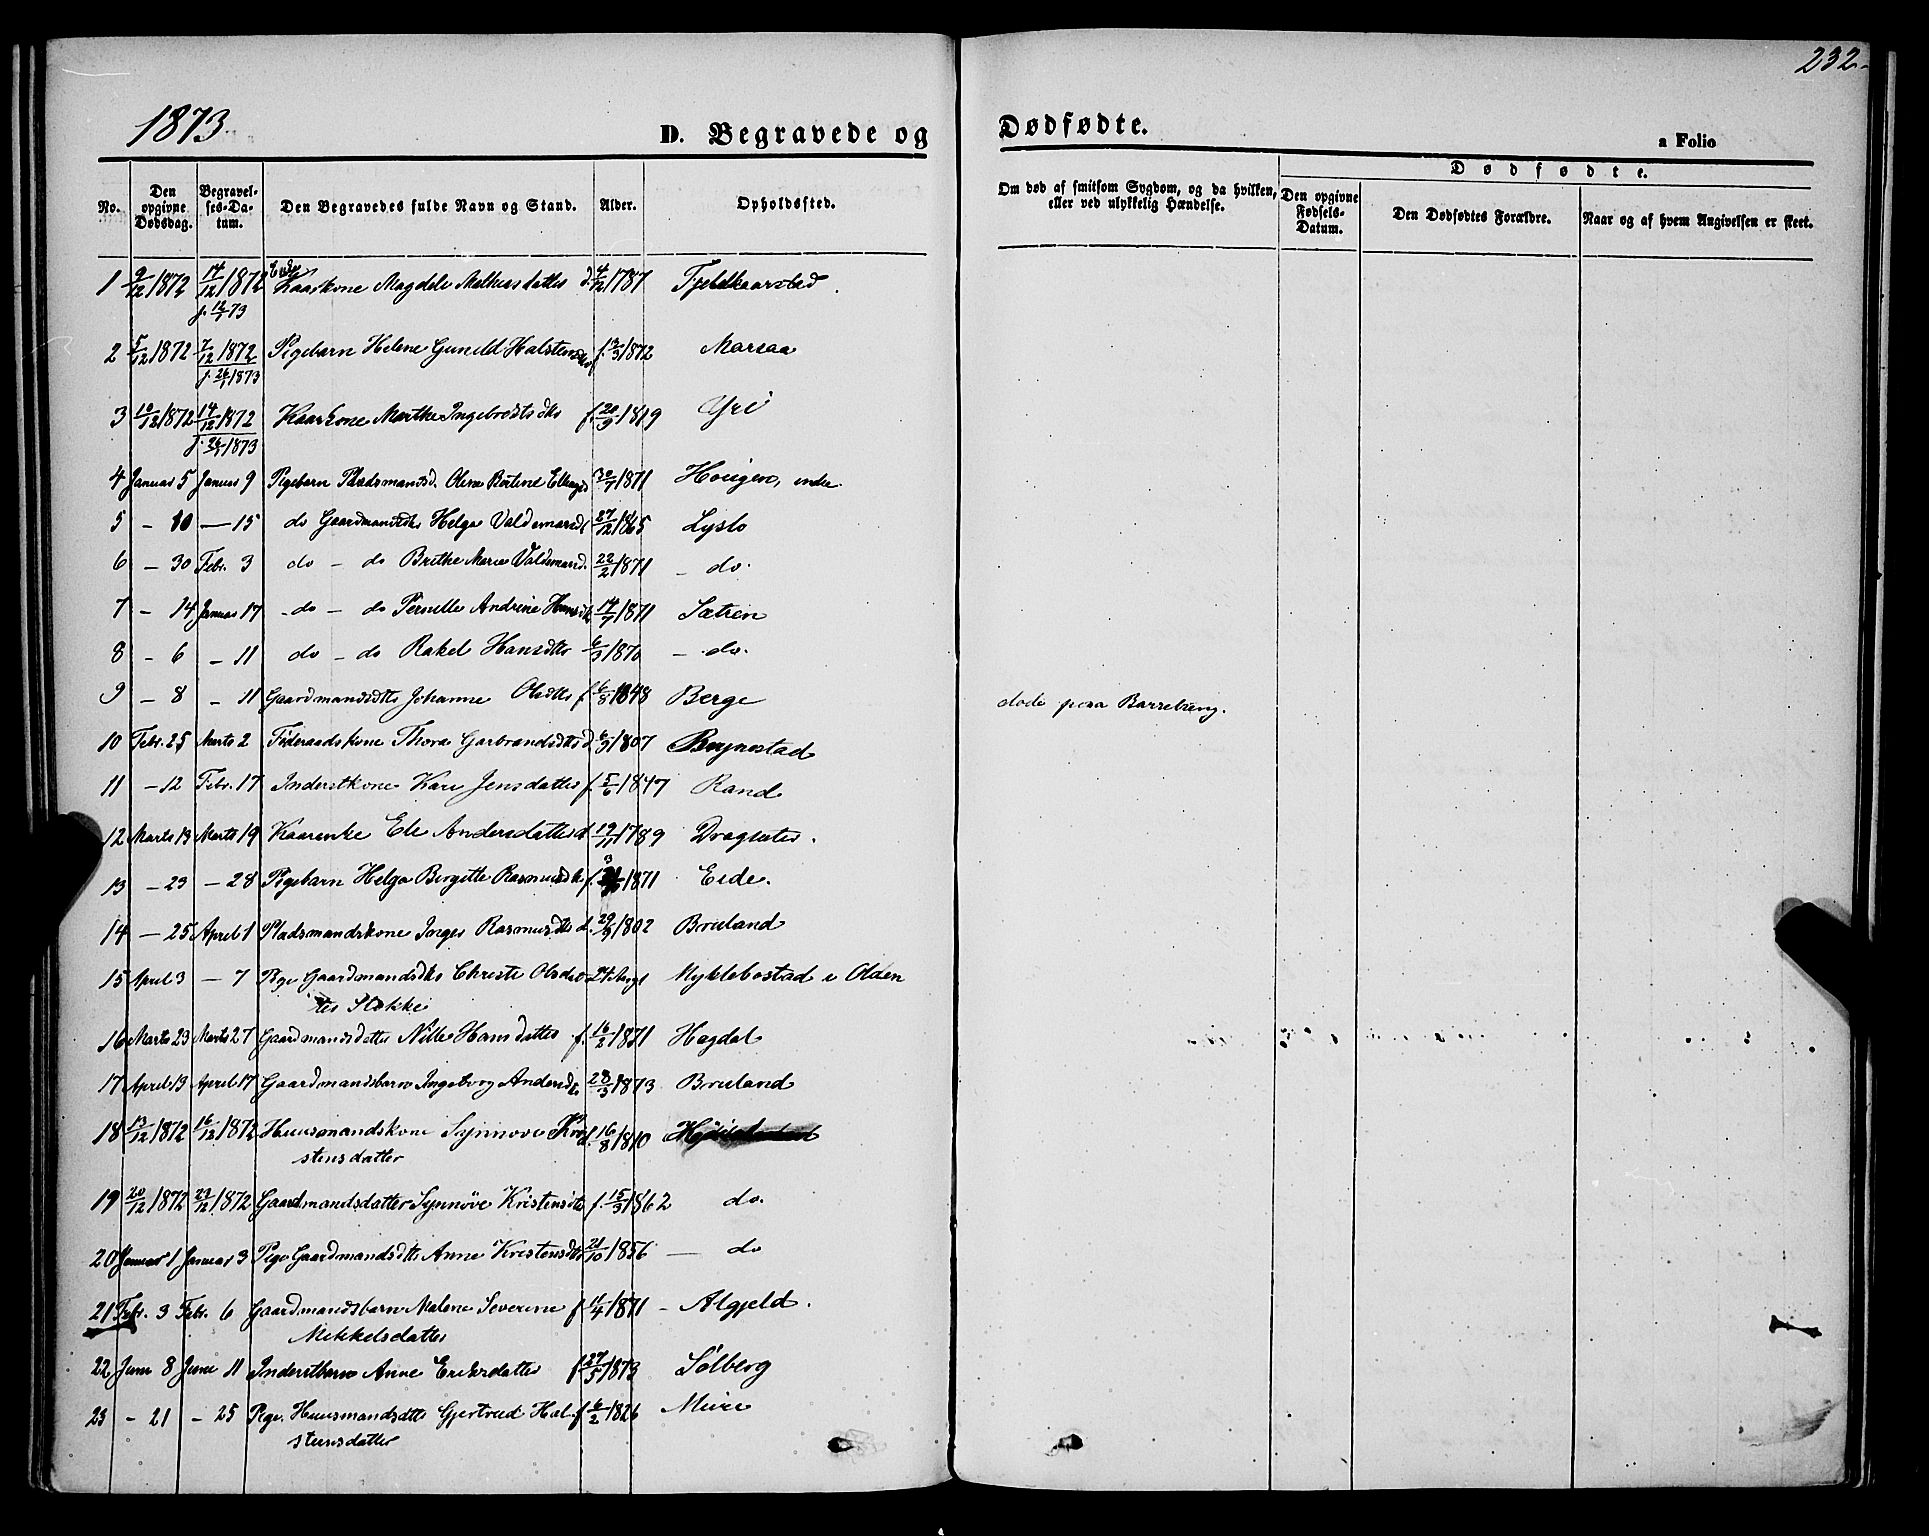 232.
1873.
D. Begravede og Dødfødte.
a Folio
No.
Den opgivne Dødsdag.
Begravelses-Datum.
Den Begravedes fulde Navn og Stand.
Alder.
Opholdssted.
Om død af smitsom Sygdom, og da hvilken, eller ved ulykkelig Hændelse.
Dødfødte.
Den opgivne Fødsels-Datum.
Den Dødfødtes Forældre.
Naar og af hvem Angivelsen er skeet.
1 9/12 1872 14/12 1872 Kaarkone Magdele d. 4/12 1787
2 5/12 1872 7/12 1872 Pigebarn Helene Gunild 1872 Marsaa
j. 26/1 1873
3 10/12 1872 14/12 1872 Kaarkone Marthe Ingebretsdtr f. 20/9 1819 Yri
1873
4 Januar 5 Januar 9 Pigebarn Pladsmandsd. Oline Bertine 30/7 1871 Hougen, indre
5 - 10 - 15 do Gaardmandsdtr Helga Valdemarsdt 27/12 1865 Lyslo
6 - 30 Febr. 3 do - do Brithe Marie Valdemarsd. 22/2 1871 - do.
7 - 14 Januar 17 - do - do Pernille Andrine Hansdt 14/7 1871 Sætren
8 - 6 - 11 do - do Rakel Hansdtr 6/3 1870 - do.
9 - 8 - 11 Gaardmandsdtr Johanne Olsdtr f. 6/8 1848 Berge døde paa Barselseng.
10 Febr. 25 Marts 2 Føderaadskone Thora Garbrandsdtr d. 6/3 1807 Brynestad
11 - 12 Febr. 17 Inderstkone Kari Jensdatter f. 5/6 1847 Rand
12 Marts 13 Marts 19 Kaarenke Eli Andersdatter d. 19/11 1789 Dragsæter.
13 - 23 - 28 Pigebarn Helga Birgitte Rasmusdtr f. 1871 Eide.
14 - 25 April 1 Pladsmandskone Inger Rasmusdtr d. 29/9 1802 Bruland
15 April 3 - 7 Pige Gaardmandsdtr Christi Olsdat Myklebostad i Olden
ter Stokke
16 Marts 23 Marts 27 Gaardmandsdatter Nille Hansdatter f. 16/2 1871 Hagdal
17 April 13 April 17 Gaardmandsbarn Ingeborg Andersdtr 28/3 1873 Bruland
18 13/12 1872 16/12 1872 Huusmandskone Synnove Kri d. 16/8 1810
stensdatter
19 20/12 1872 1872 Gaardmandsdatter Synnöve Kristensdtr f. 15/3 1862 do.
20 Januar 1 Januar 3 Pige Gaardmandsdtr Anne Kristensdtr 21/10 1856 - do
21 Febr. 3 Febr. 6 Gaardmandsbarn Malene Severine f. 11/4 1871 - Algjeld.
Mikkelsdatter
22 Juni 8 Juni 11 Inderstbarn Anne Eriksdatter f. 27/5 1873 Solberg
23 - 21 - 25 Pige. Huusmandsdtr Gjertrud Hal- f. 6/2 1826 Muri
stensdatter